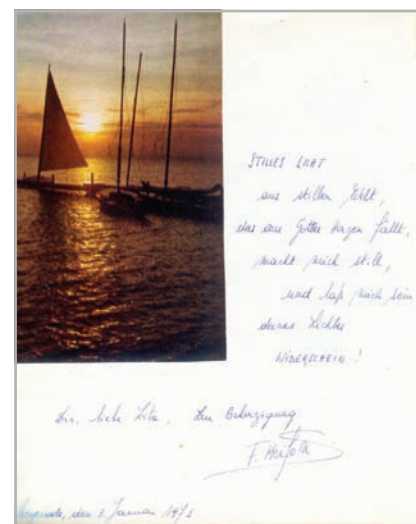 STILLES LICHT
aus stillem Licht,
das aus Gottes Augen fällt,
macht mich still,
und laß mich sein
deines Lichtes
WIDERSCHEIN!
Dir, liebe Rita, zur Beherzigung
den 2. Januar 1975